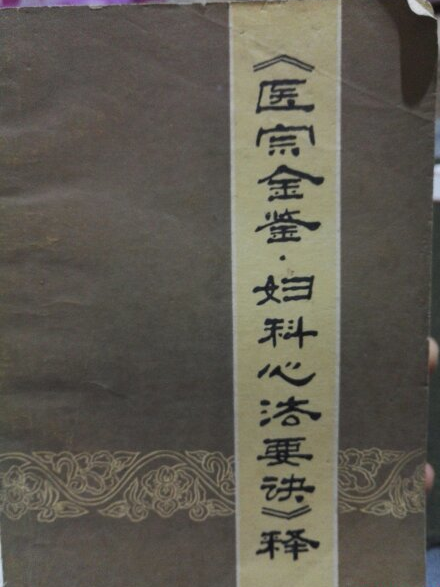 《医宗金鉴·妇科心法要诀》释